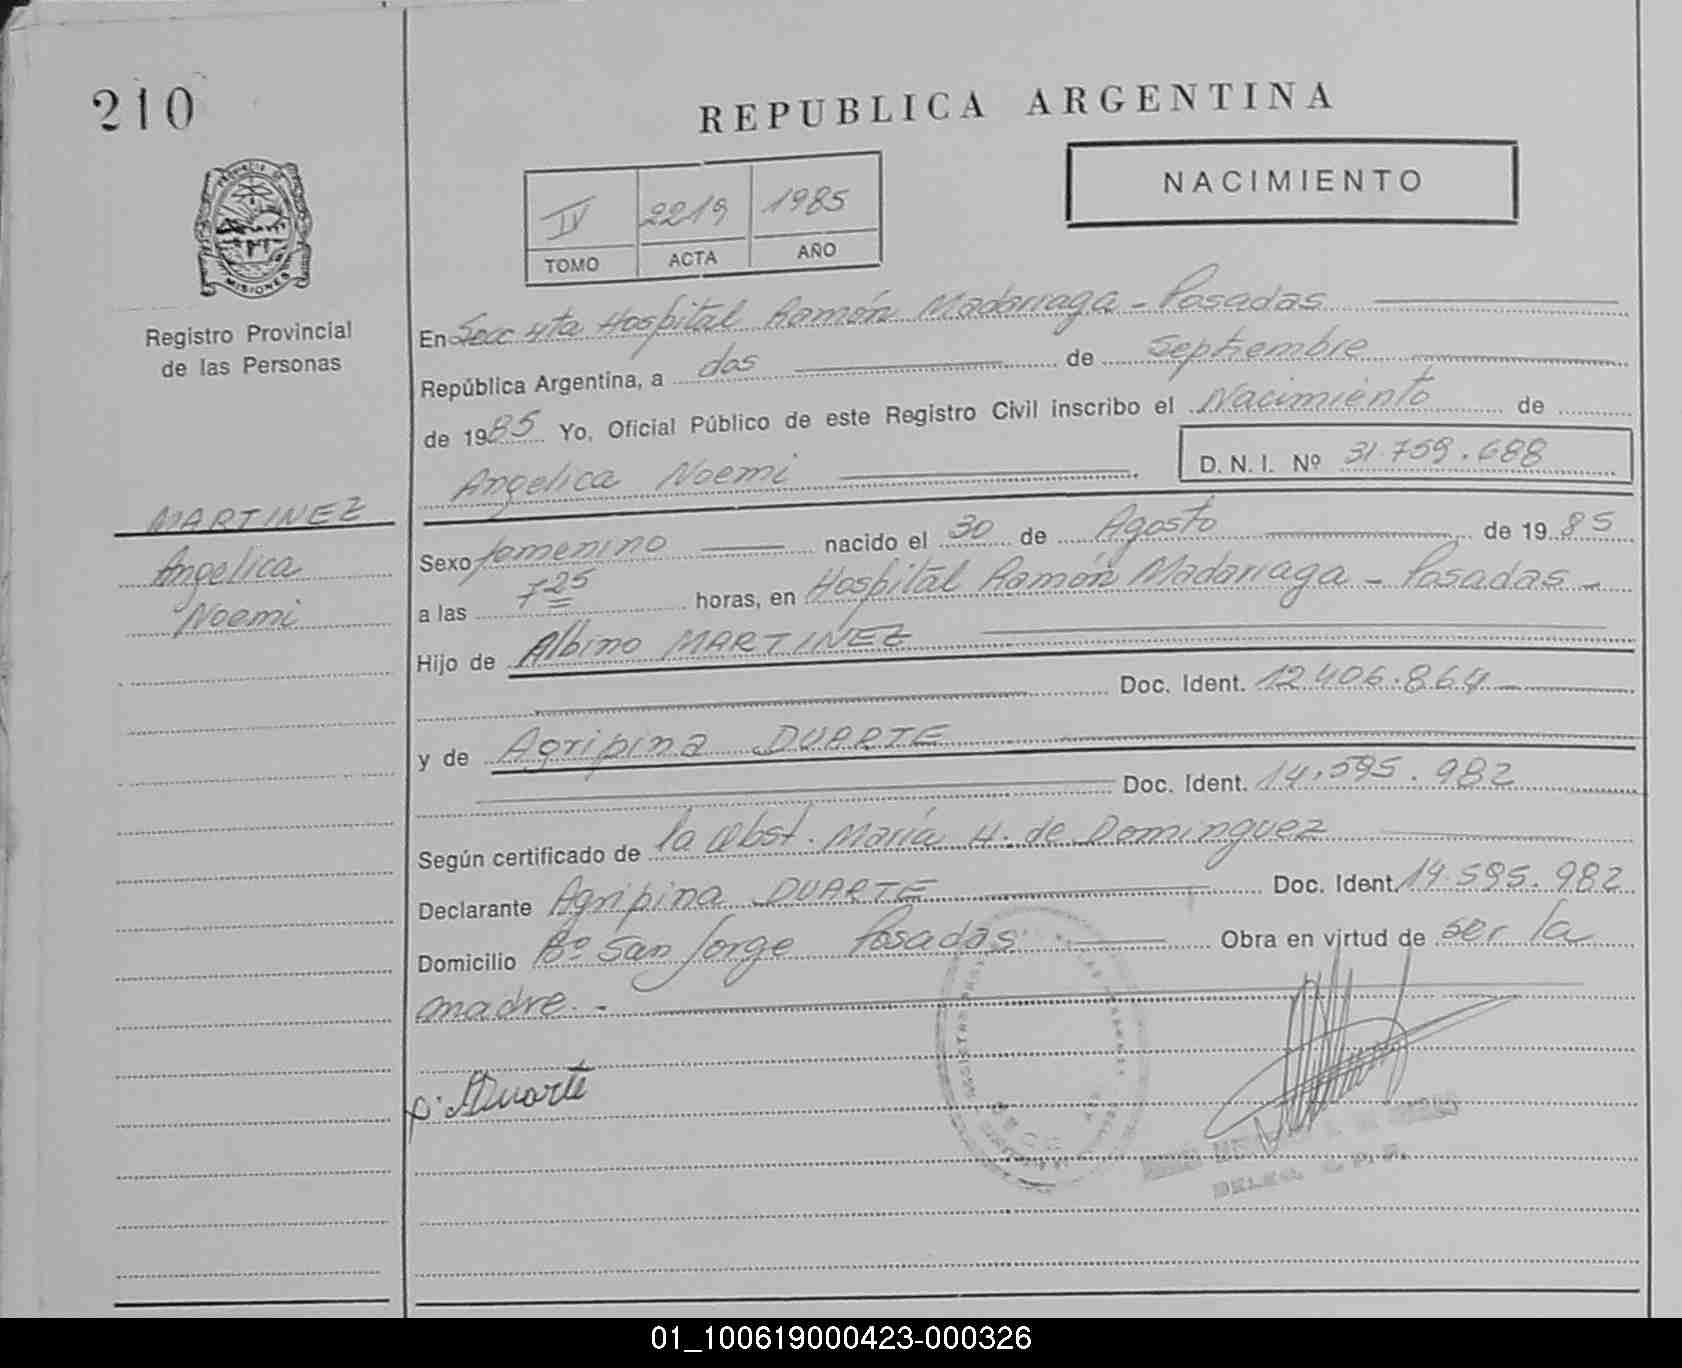 210
REPUBLICA ARGENTINA
NACIMIENTO
IV 2219 1985
TOMO ACTA AÑO
MISIONES
Registro Provincial
de las Personas
En Secc 4ta Hospital Ramón Madariaga - Posadas
República Argentina, a dos de Septiembre
de 1985 Yo, Oficial Público de este Registro Civil inscribo el Nacimiento de
Angelica Noemi D.N.I. Nº 31.759.688
MARTINEZ
Angelica
Noemi
Sexo femenino nacido el 30 de Agosto de 1985
a las 7 25 horas, en Hospital Ramón Madariaga - Posadas -
Hijo de Albino MARTINEZ
Doc. Ident. 12.406.864
y de Agripina DUARTE
Doc. Ident. 14.595.982
Según certificado de la Obst. María H. de Dominguez
Declarante Agripina DUARTE Doc. Ident. 14.595.982
Domicilio Bº San Jorge Posadas Obra en virtud de ser la
madre. -
Duarte
01_100619000423-000326